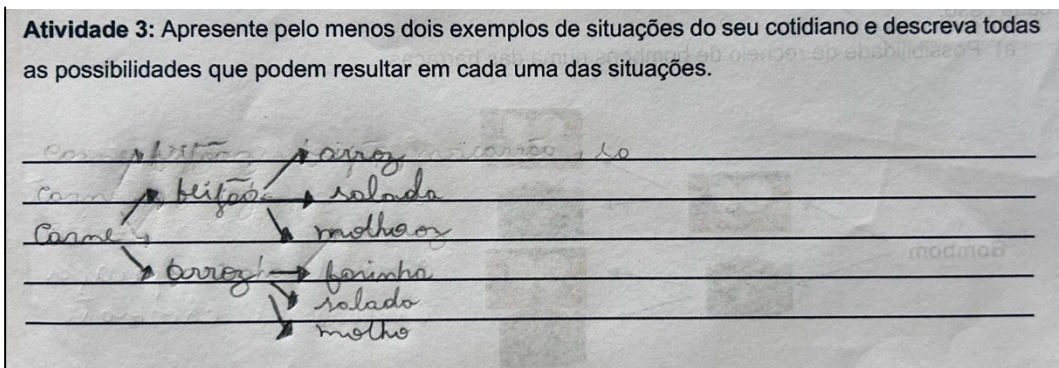 Atividade 3: Apresente pelo menos dois exemplos de situações do seu cotidiano e descreva todas
as possibilidades que podem resultar em cada uma das situações.
arroz
feijão salada
Carne molho
arroz farinha
salada
molho